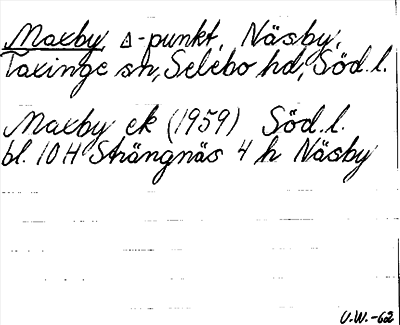 Maxby, ∆-punkt, Näsby,
Taxinge sn, Selebo hd, Söd. l.
Maxby ek (1959) Söd. l.
bl. 10 H Strängnäs 4 h Näsby
U.W.-62